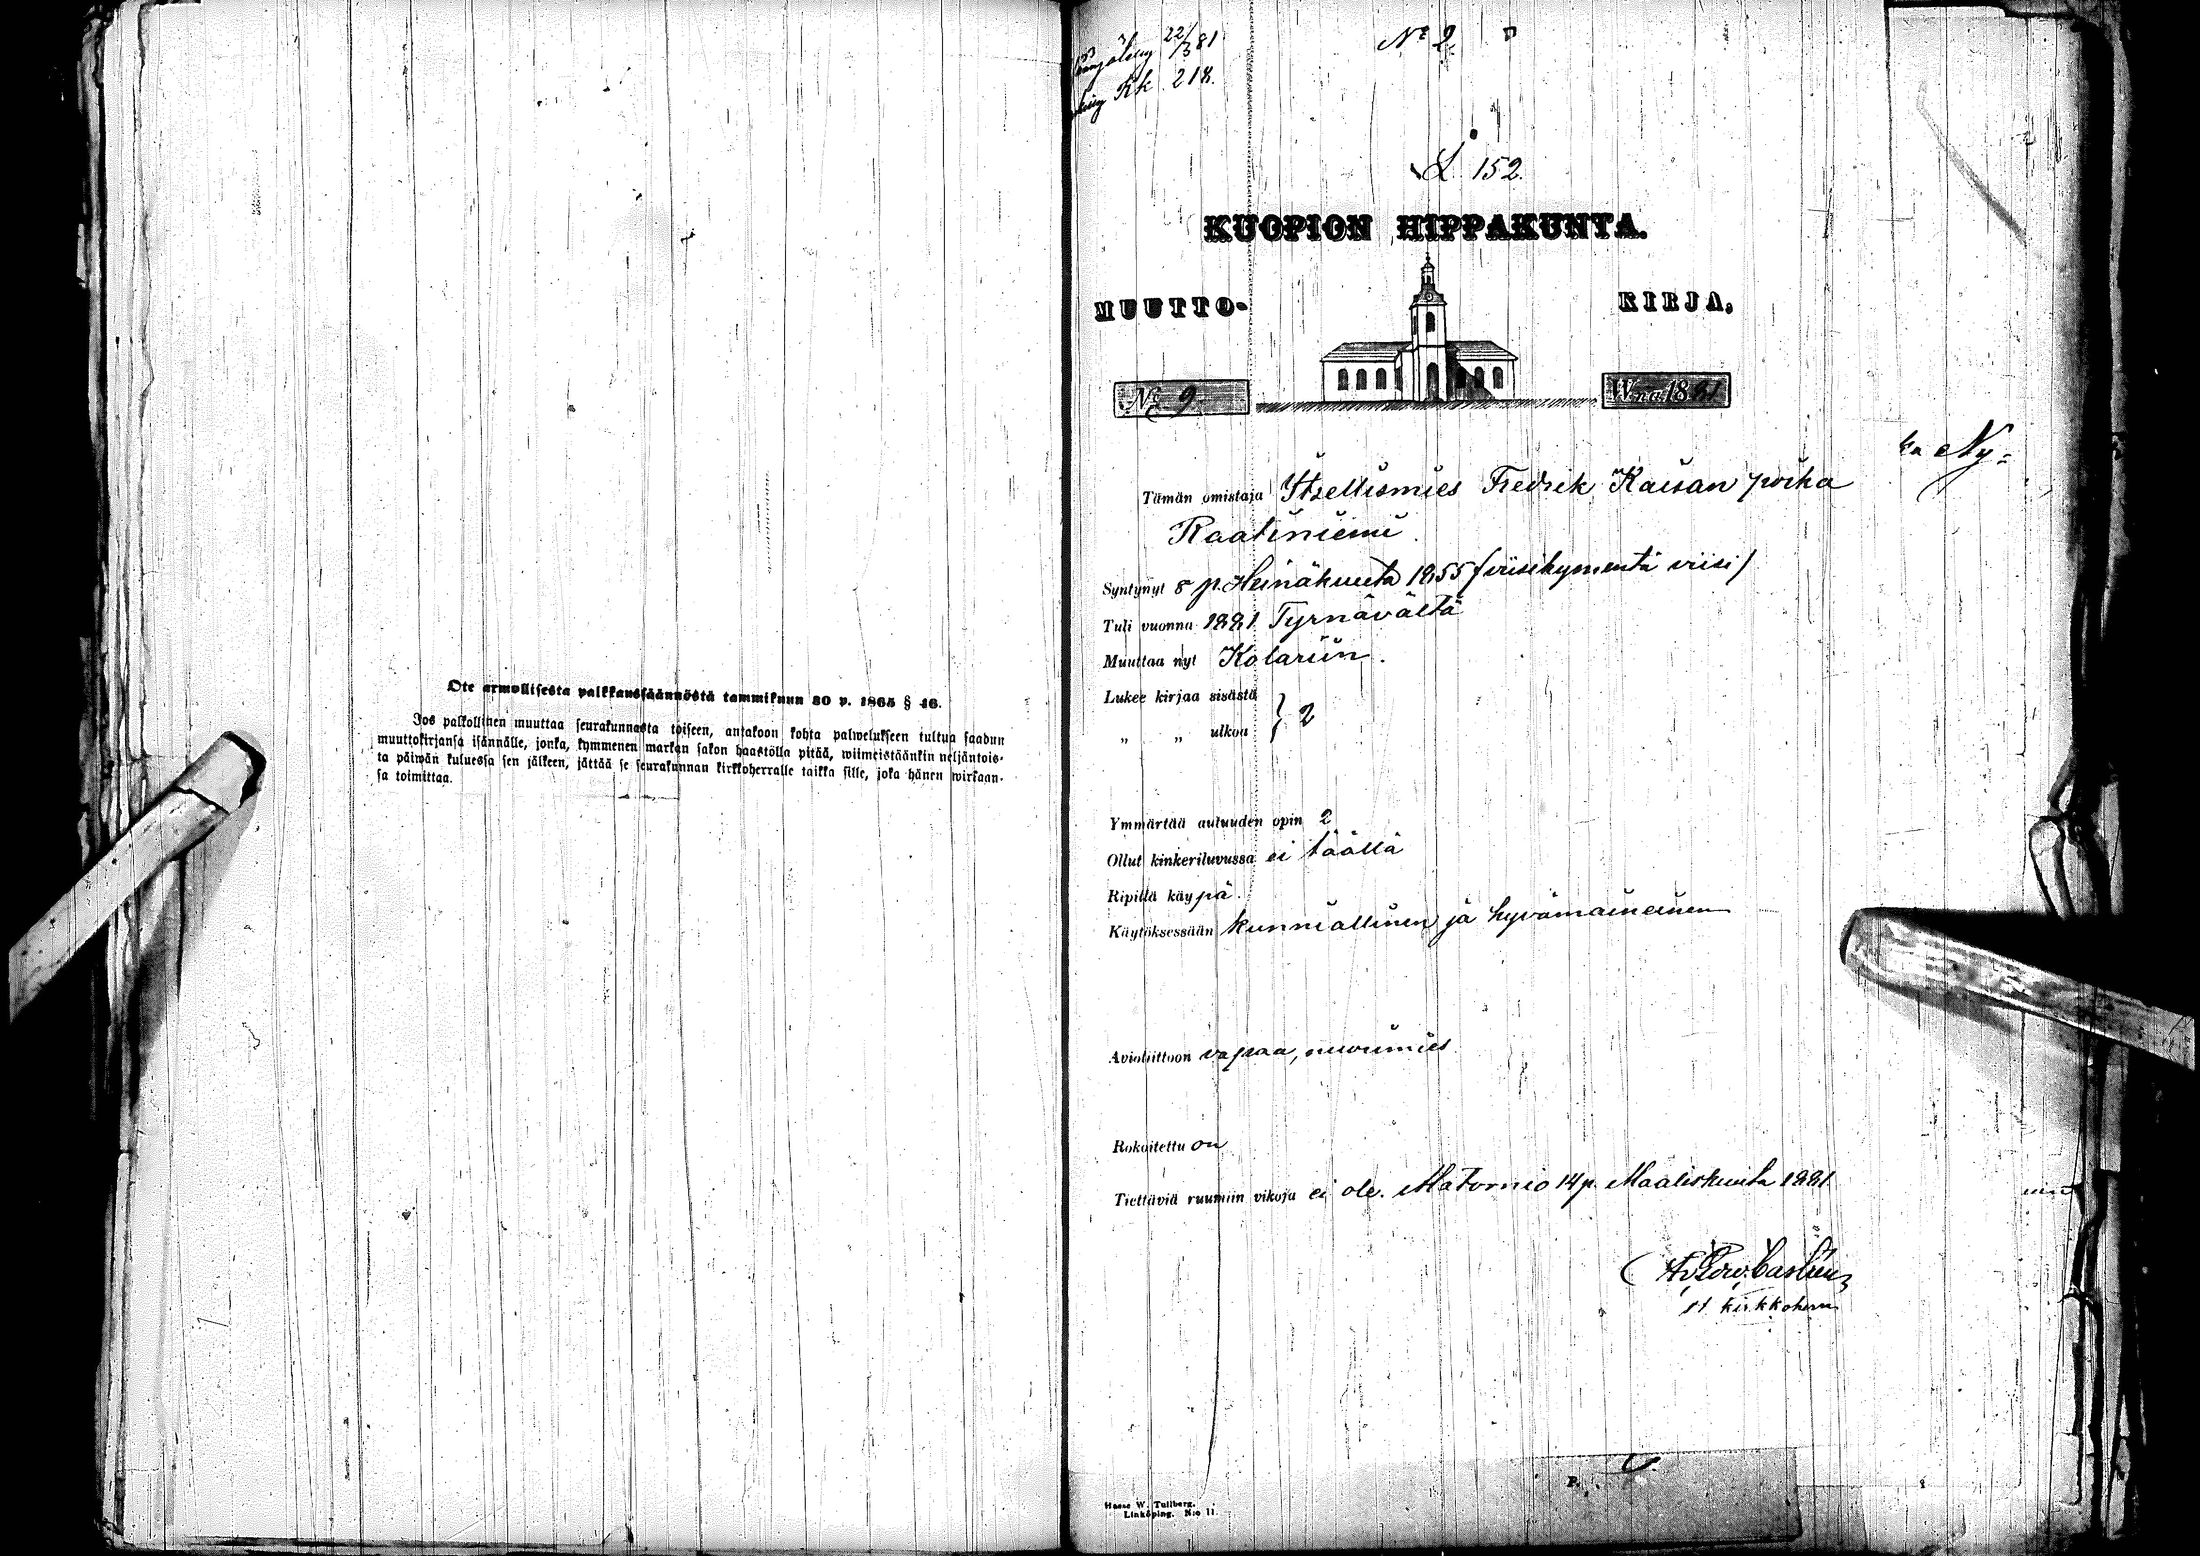 Ote armollisesta palkkaussäännöstä tammikuun 30 p. 1865 § 46.
Jos palkollinen muuttaa seurakunnasta toiseen, antakoon kohta palwelukseen tultua saadun
muuttokirjansa isännälle, jonka, kymmenen markan sakon haastolla pitää, wiimeistäänkin neljäntois-
ta päiwän kuluessa sen jälkeen, jättää se seurakunnan kirkkoherralle taikka sille, joka hänen wirkaan-
sa toimittaa.
22/3 81
Rk 218.
No 2.
L 152.
KUOPION HIPPAKUNTA.
MUUTTO- KIRJA,
No 9 W:na 1881
ka Ny=
Tämän omistaja Itsellismies Fredrik Kaisan poika
Raatiniemi.
Syntynyt 8 p. Heinäkuuta 1855 (viisikymentä viisi)
Tuli vuonna 1881 Tyrnävältä
Muuttaa nyt Kolariin.
Lukee kirjaa sisästä
„ „ ulkoa } 2
Ymmärtää autuuden opin 2
Ollut kinkeriluvussa ei täällä
Ripillä käypä.
Käytöksessään kunniallinen ja hyvämaineinen
Avioliittoon vapaa, nuorimies
Rokoitettu on
Tiettäviä ruumiin vikoja ei ole. Alatornio 14 p. Maaliskuuta 1881.
Castrén
kirkkoherra
P.
Hasse W. Tullberg.
Linköping. N:o 11.